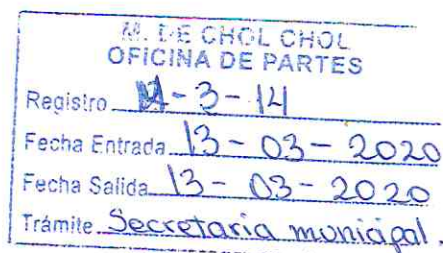 M. DE CHOL CHOL
OFICINA DE PARTES
Registro -3-14
Fecha Entrada 13-03-2020
Fecha Salida 13-03-2020
Trámite Secretaria municipal.